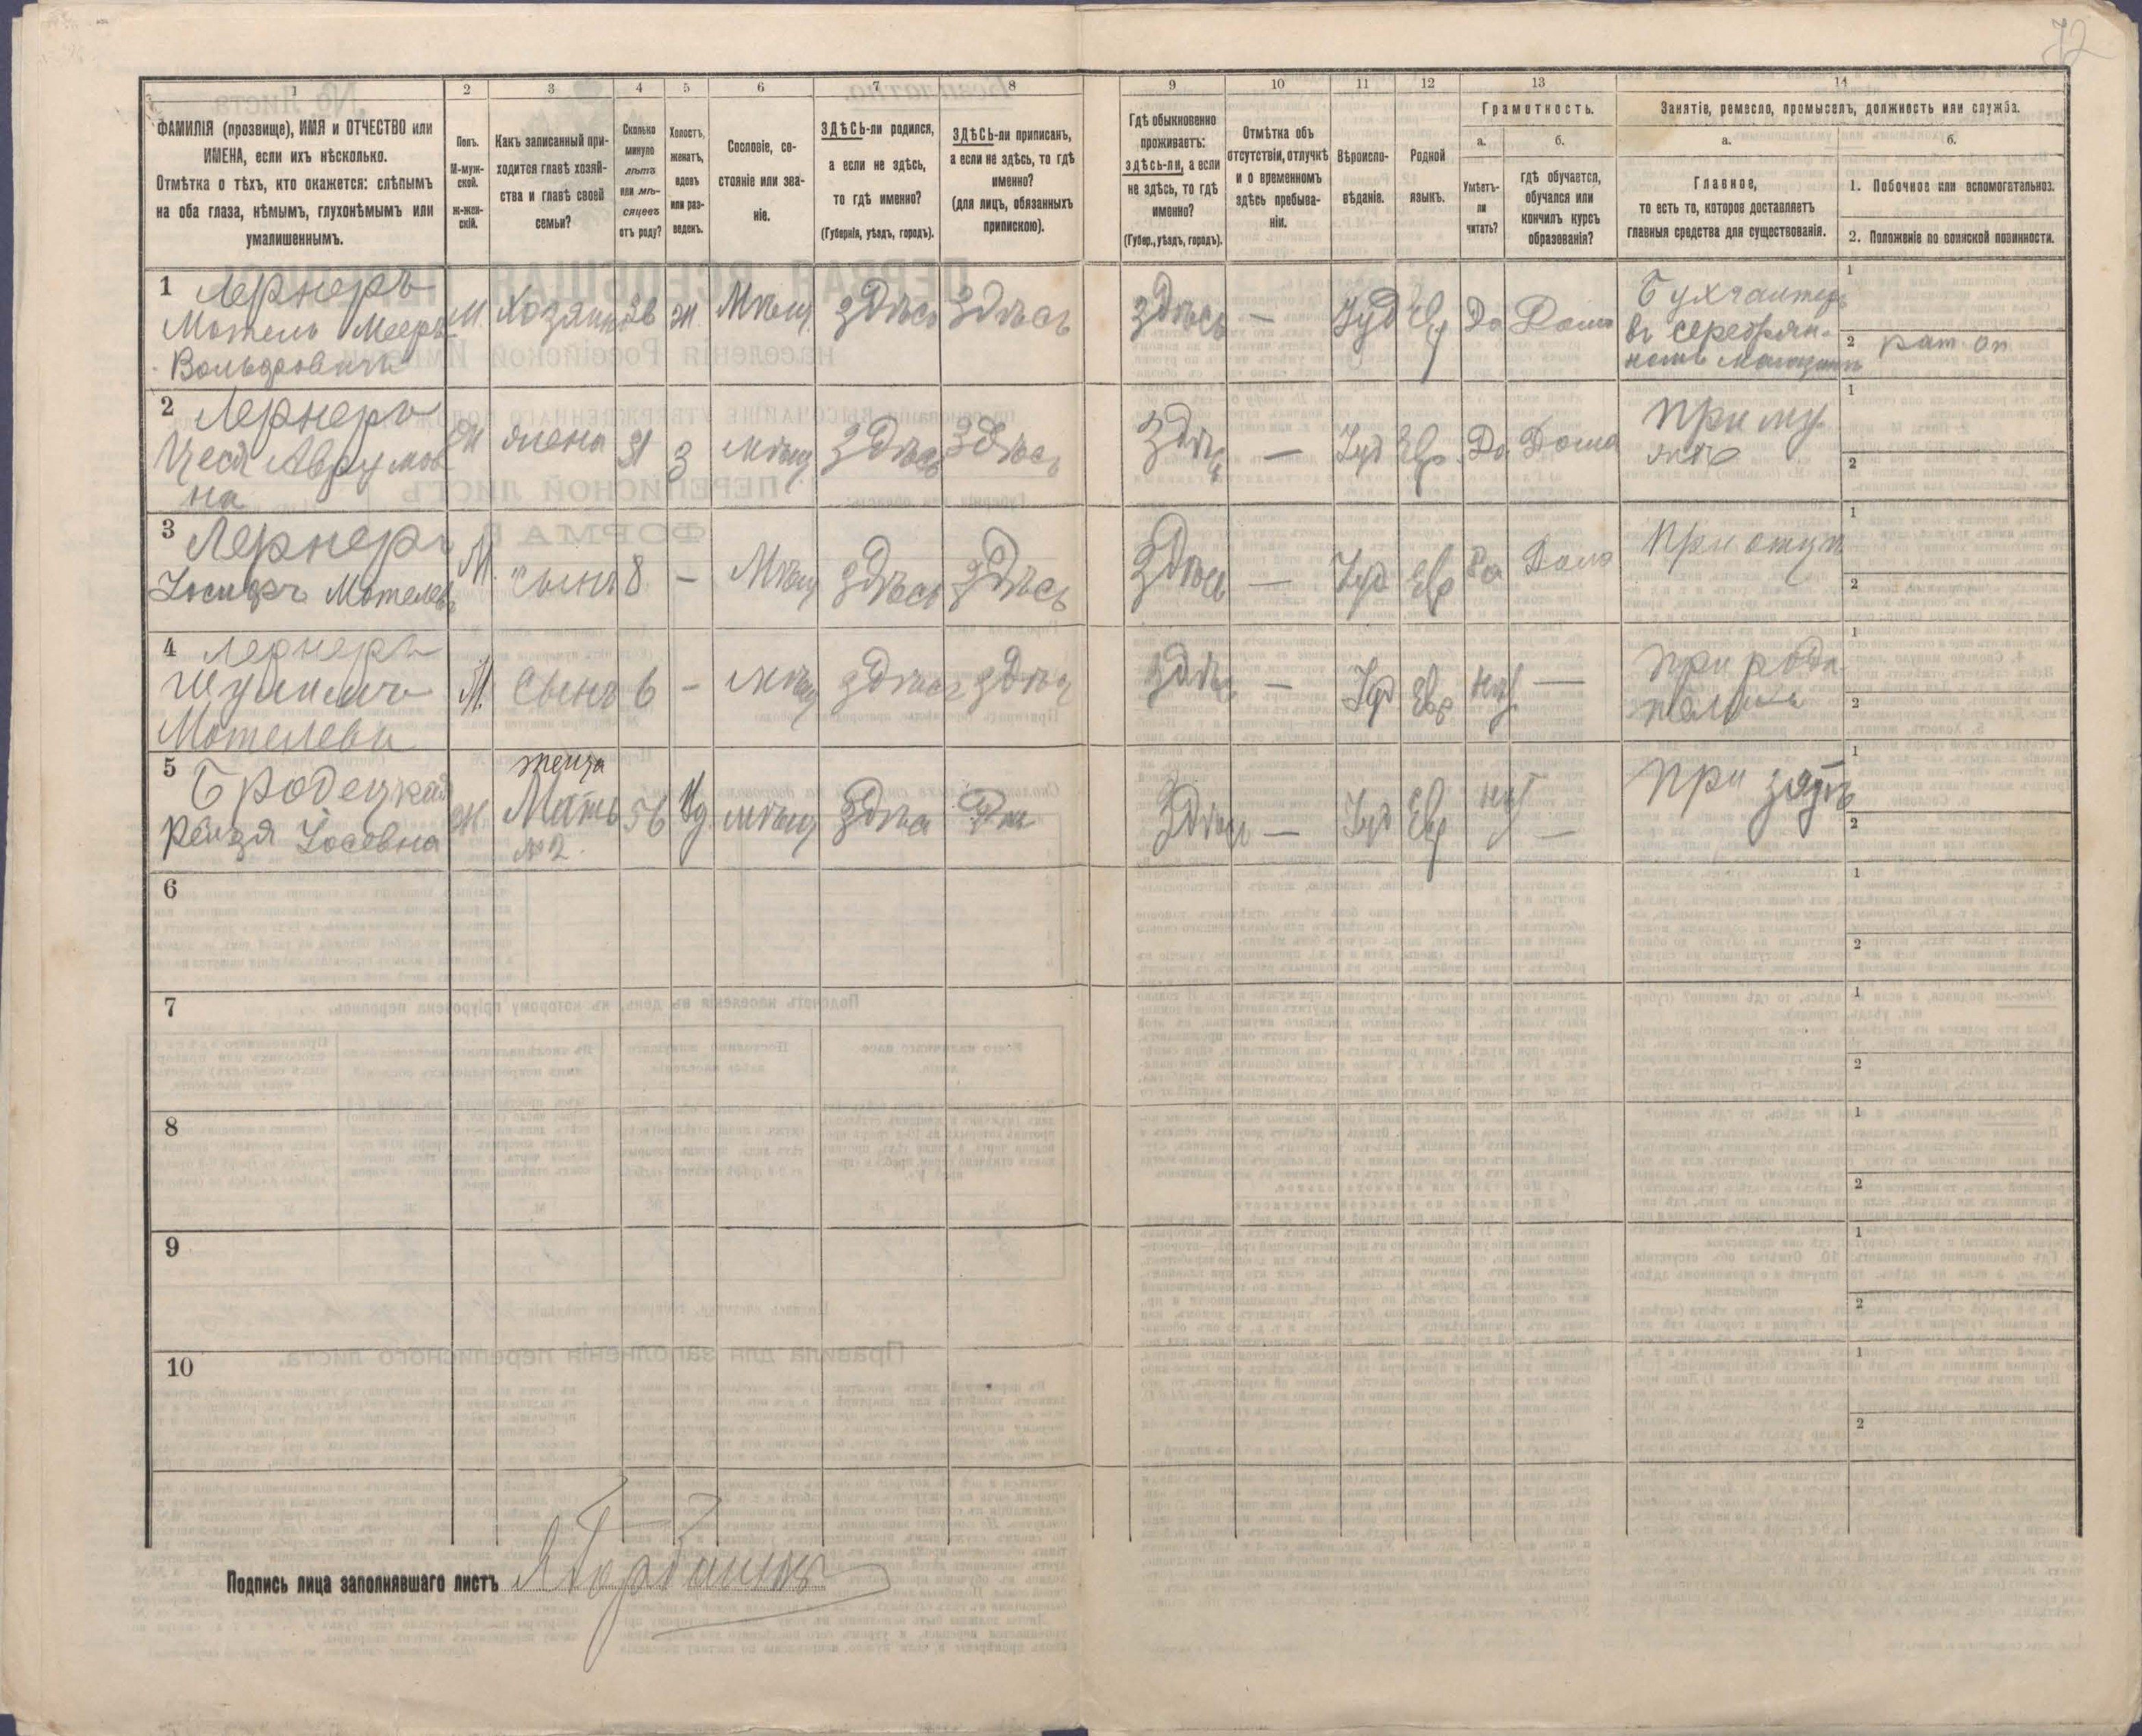 72
1 2 3 4 5 6 7 8 9 10 11 12 13 14
ФАМИЛІЯ (прозвище), ИМЯ и ОТЧЕСТВО или
ИМЕНА, если ихъ нѣсколько.
Отмѣтка о тѣхъ, кто окажется: слѣпымъ
на оба глаза, нѣмымъ, глухонѣмымъ или
умалишеннымъ.
Полъ.
М-муж-
ской.
ж-жен-
скій.
Какъ записанный при-
ходится главѣ хозяй-
ства и главѣ своей
семьи?
Сколько
минуло
лѣтъ
или мѣ-
сяцевъ
отъ роду?
Холостъ,
женатъ,
вдовъ
или раз-
веденъ.
Сословіе, со-
стояніе или зва-
ніе.
ЗДѢСЬ-ли родился,
а если не здѣсь,
то гдѣ именно?
(Губернія, уѣздъ, городъ).
ЗДѢСЬ-ли приписанъ,
а если не здѣсь, то гдѣ
именно?
(для лицъ, обязанныхъ
припискою).
Гдѣ обыкновенно
проживаетъ:
здѣсь-ли, а если
не здѣсь, то гдѣ
именно?
(Губер., уѣздъ, городъ).
Отмѣтка объ
отсутствіи, отлучкѣ
и о временномъ
здѣсь пребыва-
ніи.
Вѣроиспо-
вѣданіе.
Родной
языкъ.
Грамотность.
а.
Умѣетъ-
ли
читать?
б.
гдѣ обучается,
обучался или
кончилъ курсъ
образованія?
Занятіе, ремесло, промыселъ, должность или служба.
а.
Главное,
то есть то, которое доставляетъ
главныя средства для существованія.
б.
1. Побочное или вспомогательное.
2. Положеніе по воинской повинности.
1 Лернеръ
Мотель Мееръ
Вольфовичъ
М. Хозяинъ 36 ж. Мѣщ здѣсь здѣсь здѣсь — Іуд Евр Да Дома
Бухгалтеръ
въ серебрян-
номъ магазинѣ
1
2 рат. оп
2 Лернеръ
Аврумов
на
Ж жена 31 З мѣщ здѣсь здѣсь здѣсь — Іуд Евр Да Дома
При му
жѣ
1
2
3 Лернеръ
Іосифъ Мотелевъ
М. сынъ 8 — Мѣщ здѣсь здѣсь здѣсь — Іуд Евр Да Дома
При отцѣ
1
2
4 Лернеръ
Мотелевъ
М. Сынъ 6 — мѣщ здѣсь здѣсь здѣсь — Іуд Евр нѣт —
При роди
теляхъ
1
2
5 Бродецкая
Рейзя Іосевна
Ж теща
Мать
№ 2.
56 Вд мѣщ здѣсь здѣсь — Іуд Евр нѣт —
При зятѣ
1
2
6
1
2
7
1
2
8
1
2
9
1
2
10
1
2
Подпись лица заполнявшаго листъ